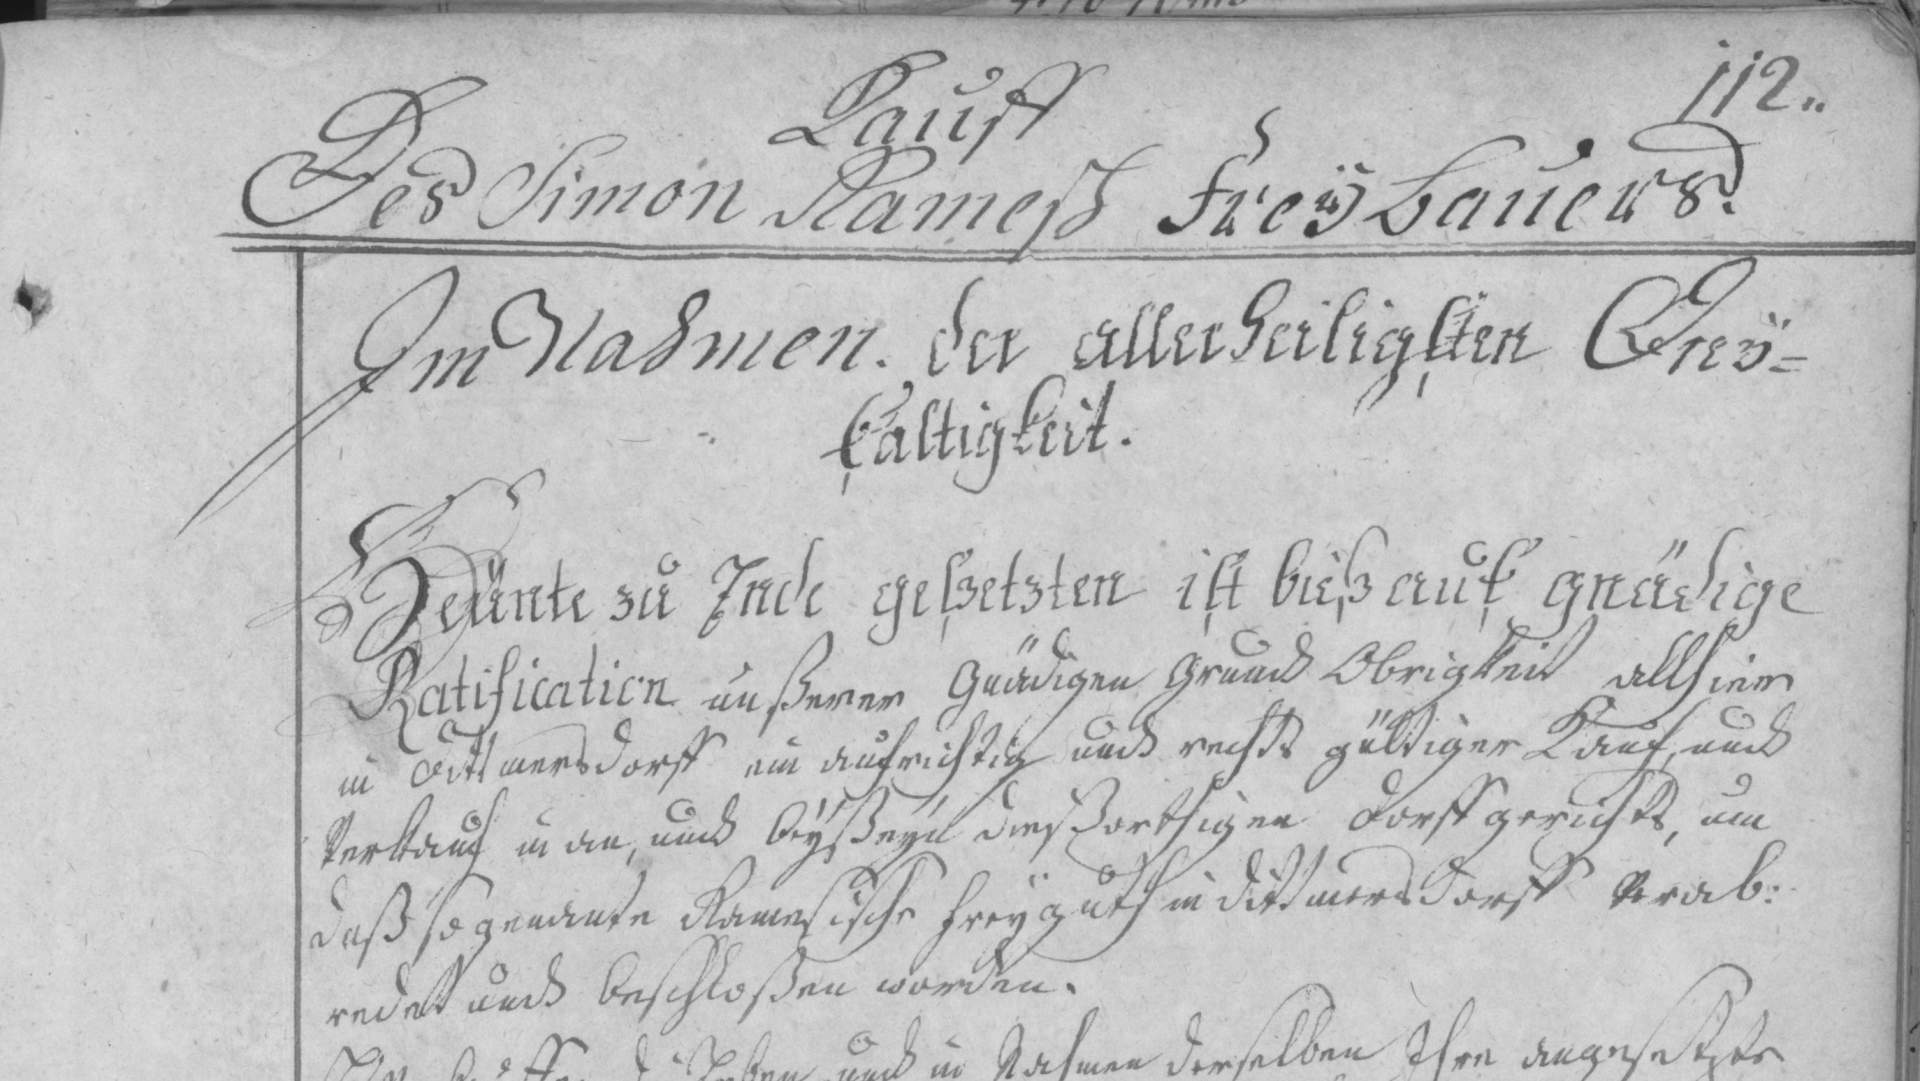 112..
Kauff
Des Simon Ramesch Freÿ bauers.
Im Nahmen. der allerheiligsten Dreÿ=
faltigkeit.
Heünte zu Ende geseztzten ist bieß auf gnädige
Ratification unßerer Gnädigen Grund Obrigkeit allhier
in Dittmersdorff ein aufrichtig und rechts gültiger Kauf, und
Verkauf in an, und beÿßeÿn dießorthigen Dorffgerichts, um
daß so genante Ramesische Freÿguth in Dittmersdorff verab:
redet und beschloßen worden.
und in Nahmen derselben Ihre angesetzte